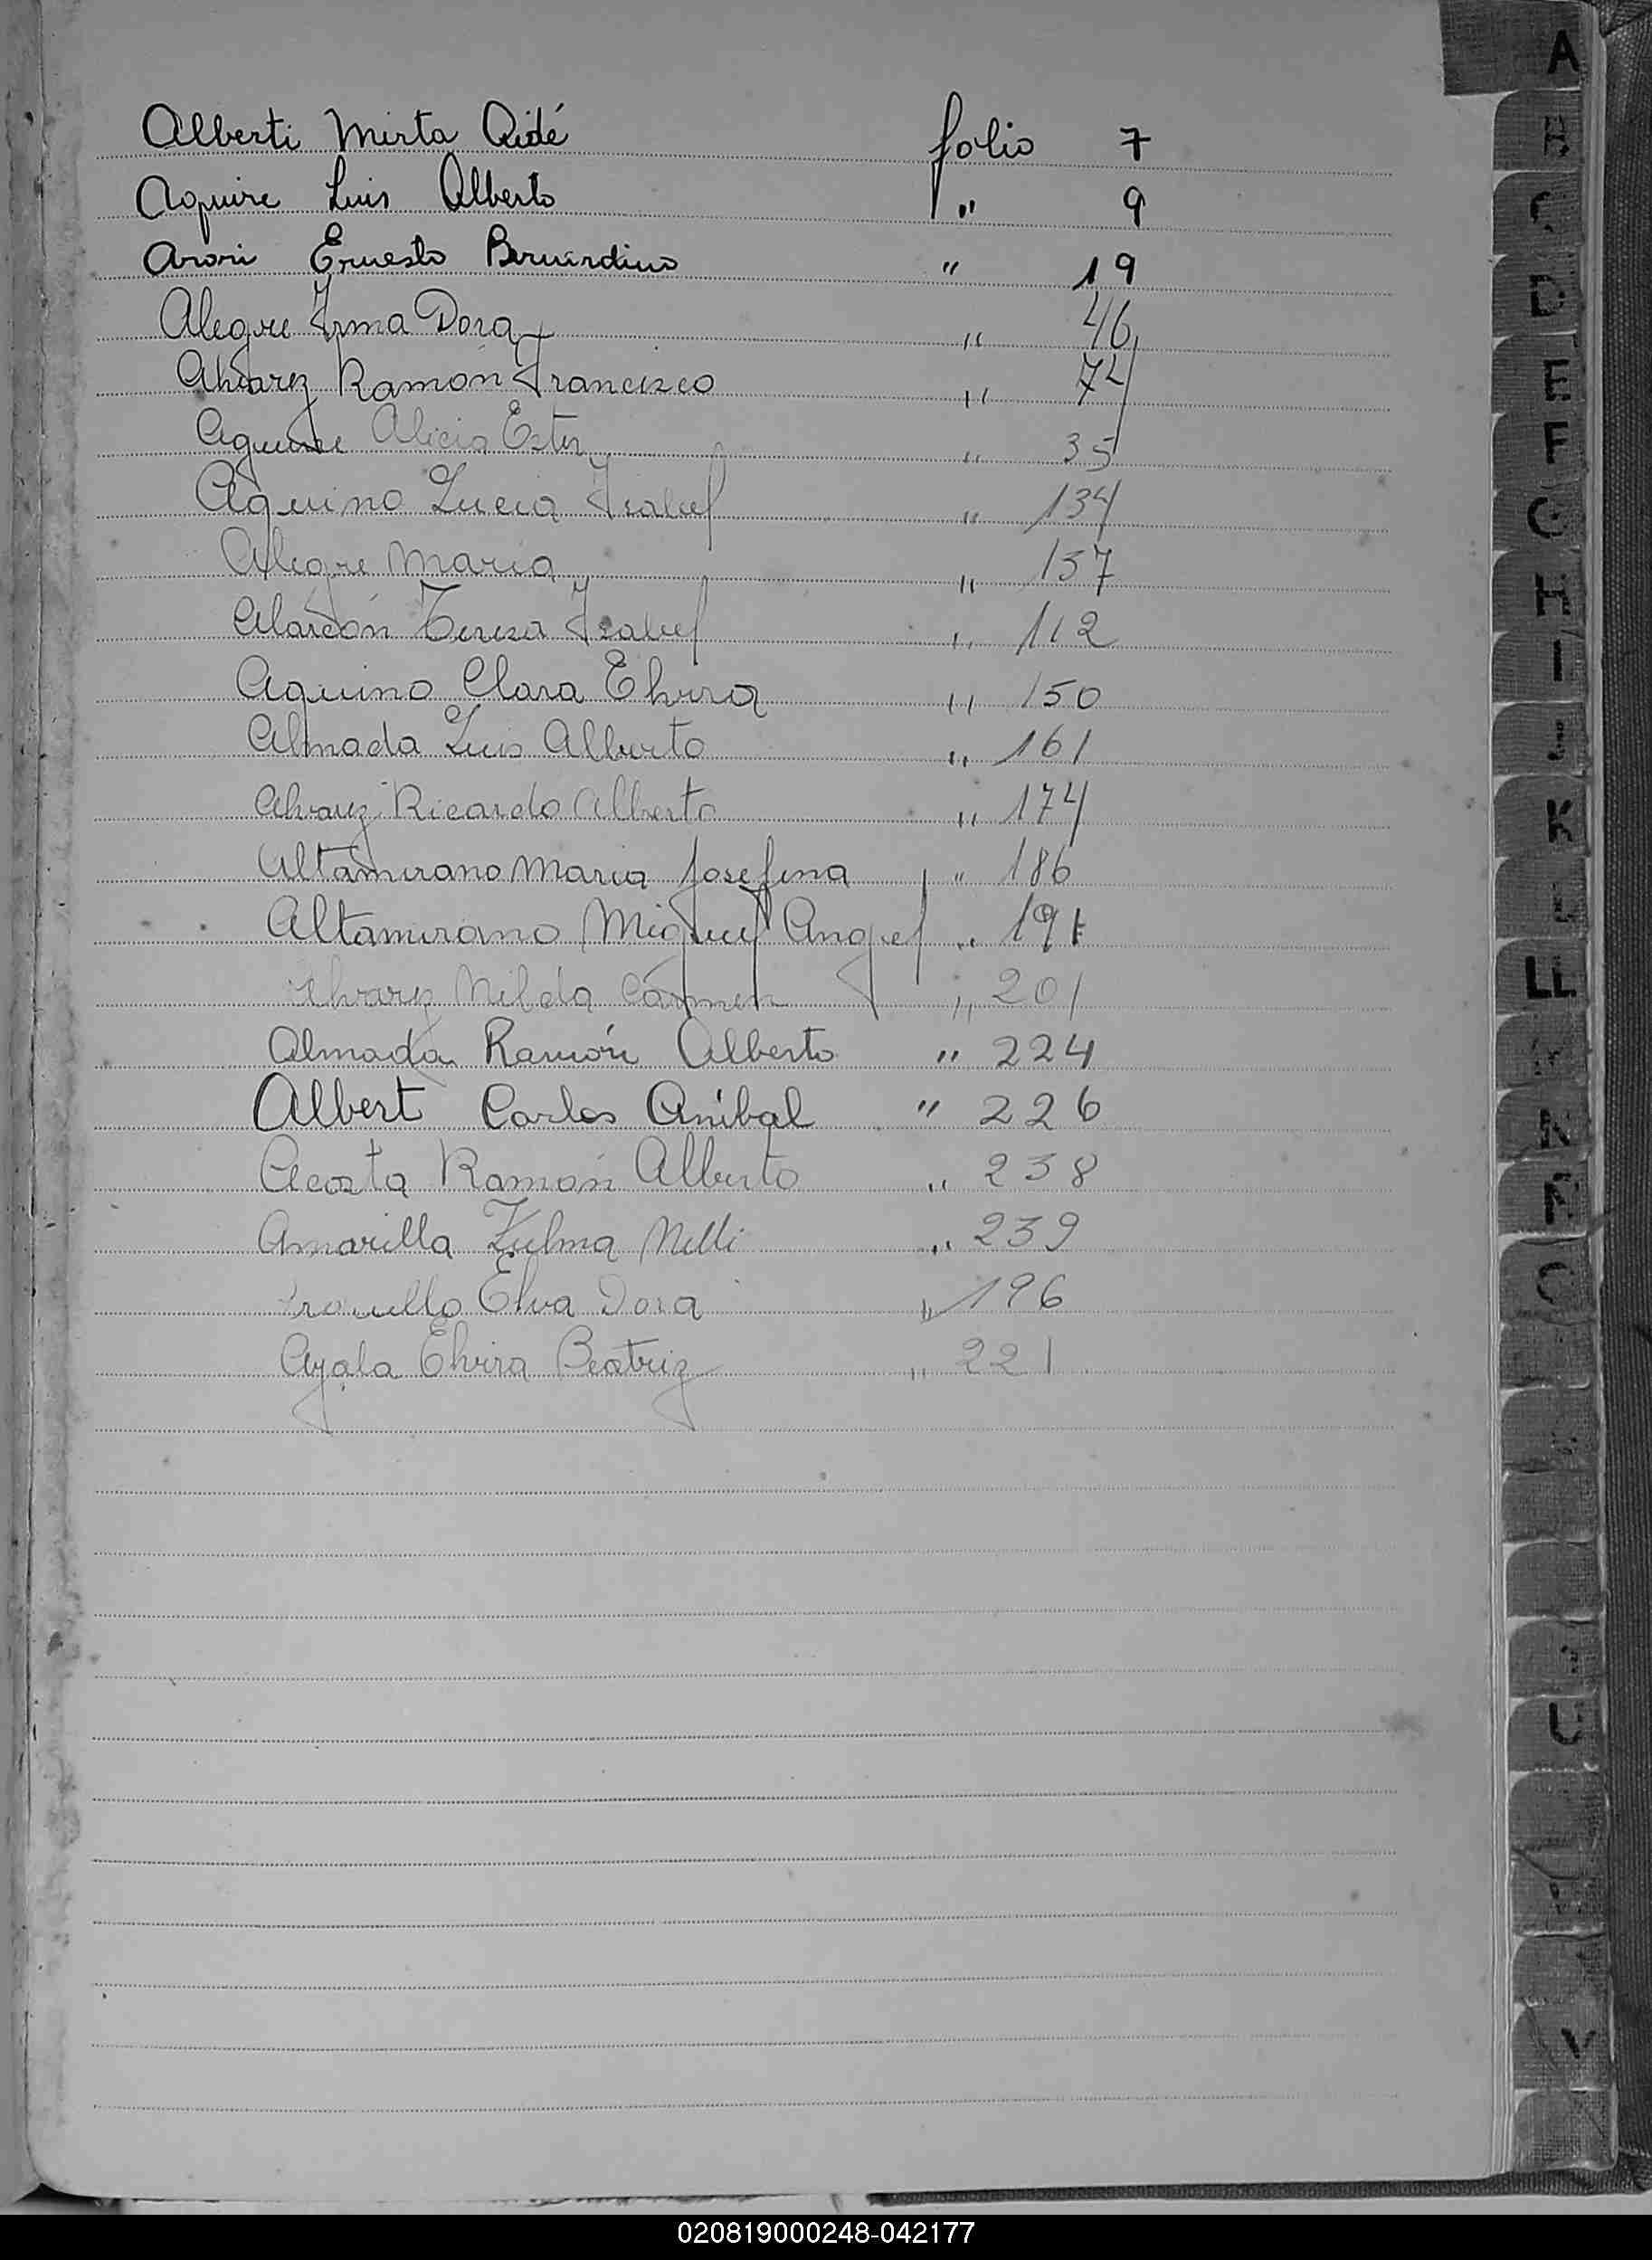 Alberti Mirta Aidé folio 7
Aguire Luis Alberto " 9
Ernesto Bernardino " 19
Alegre Irma Dora " 46
Alvarez Ramón Francisco " 74
Aguirre Alicia Ester " 35
Aquino Lucia Isabel " 134
Alegre Maria " 157
Alarcón Teresa Isabel " 112
Aquino Clara Elvira " 150
Almada Luis Alberto " 161
Alvarez Ricardo Alberto " 174
Altamirano Maria Josefina " 186
Altamirano Miguel Angel " 191
Alvarez Nilda Carmen " 201
Almada Ramón Alberto " 224
Albert Carlos Aníbal " 226
Acosta Ramón Alberto " 238
Amarilla Zulma Nelli " 239
Elva Dora " 196
Ayala Elvira Beatriz " 221
A
B
C
D
E
F
G
H
I
K
L
LL
N
O
U
V
020819000248-042177